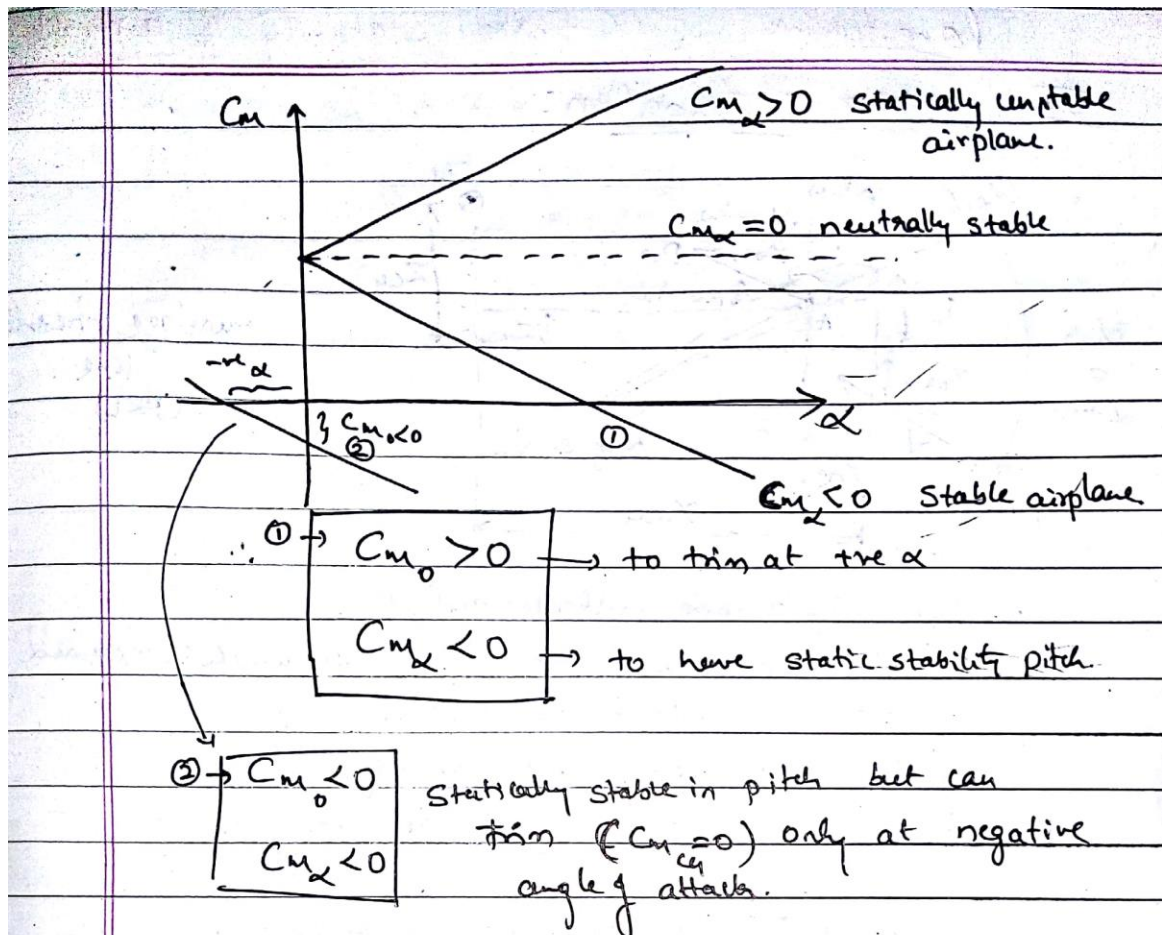 Cm
Cmα>0 statically unstable
airplane.
Cmα=0 neutrally stable
-ve α
} Cm0<0
②
①
α
Cmα<0 Stable airplane
∴ ①→ Cm0>0 → to trim at +ve α
Cmα<0 → to have static stability pitch.
②→ Cm0<0
Cmα<0
Statically stable in pitch but can
trim (Cmcg=0) only at negative
angle of attack.